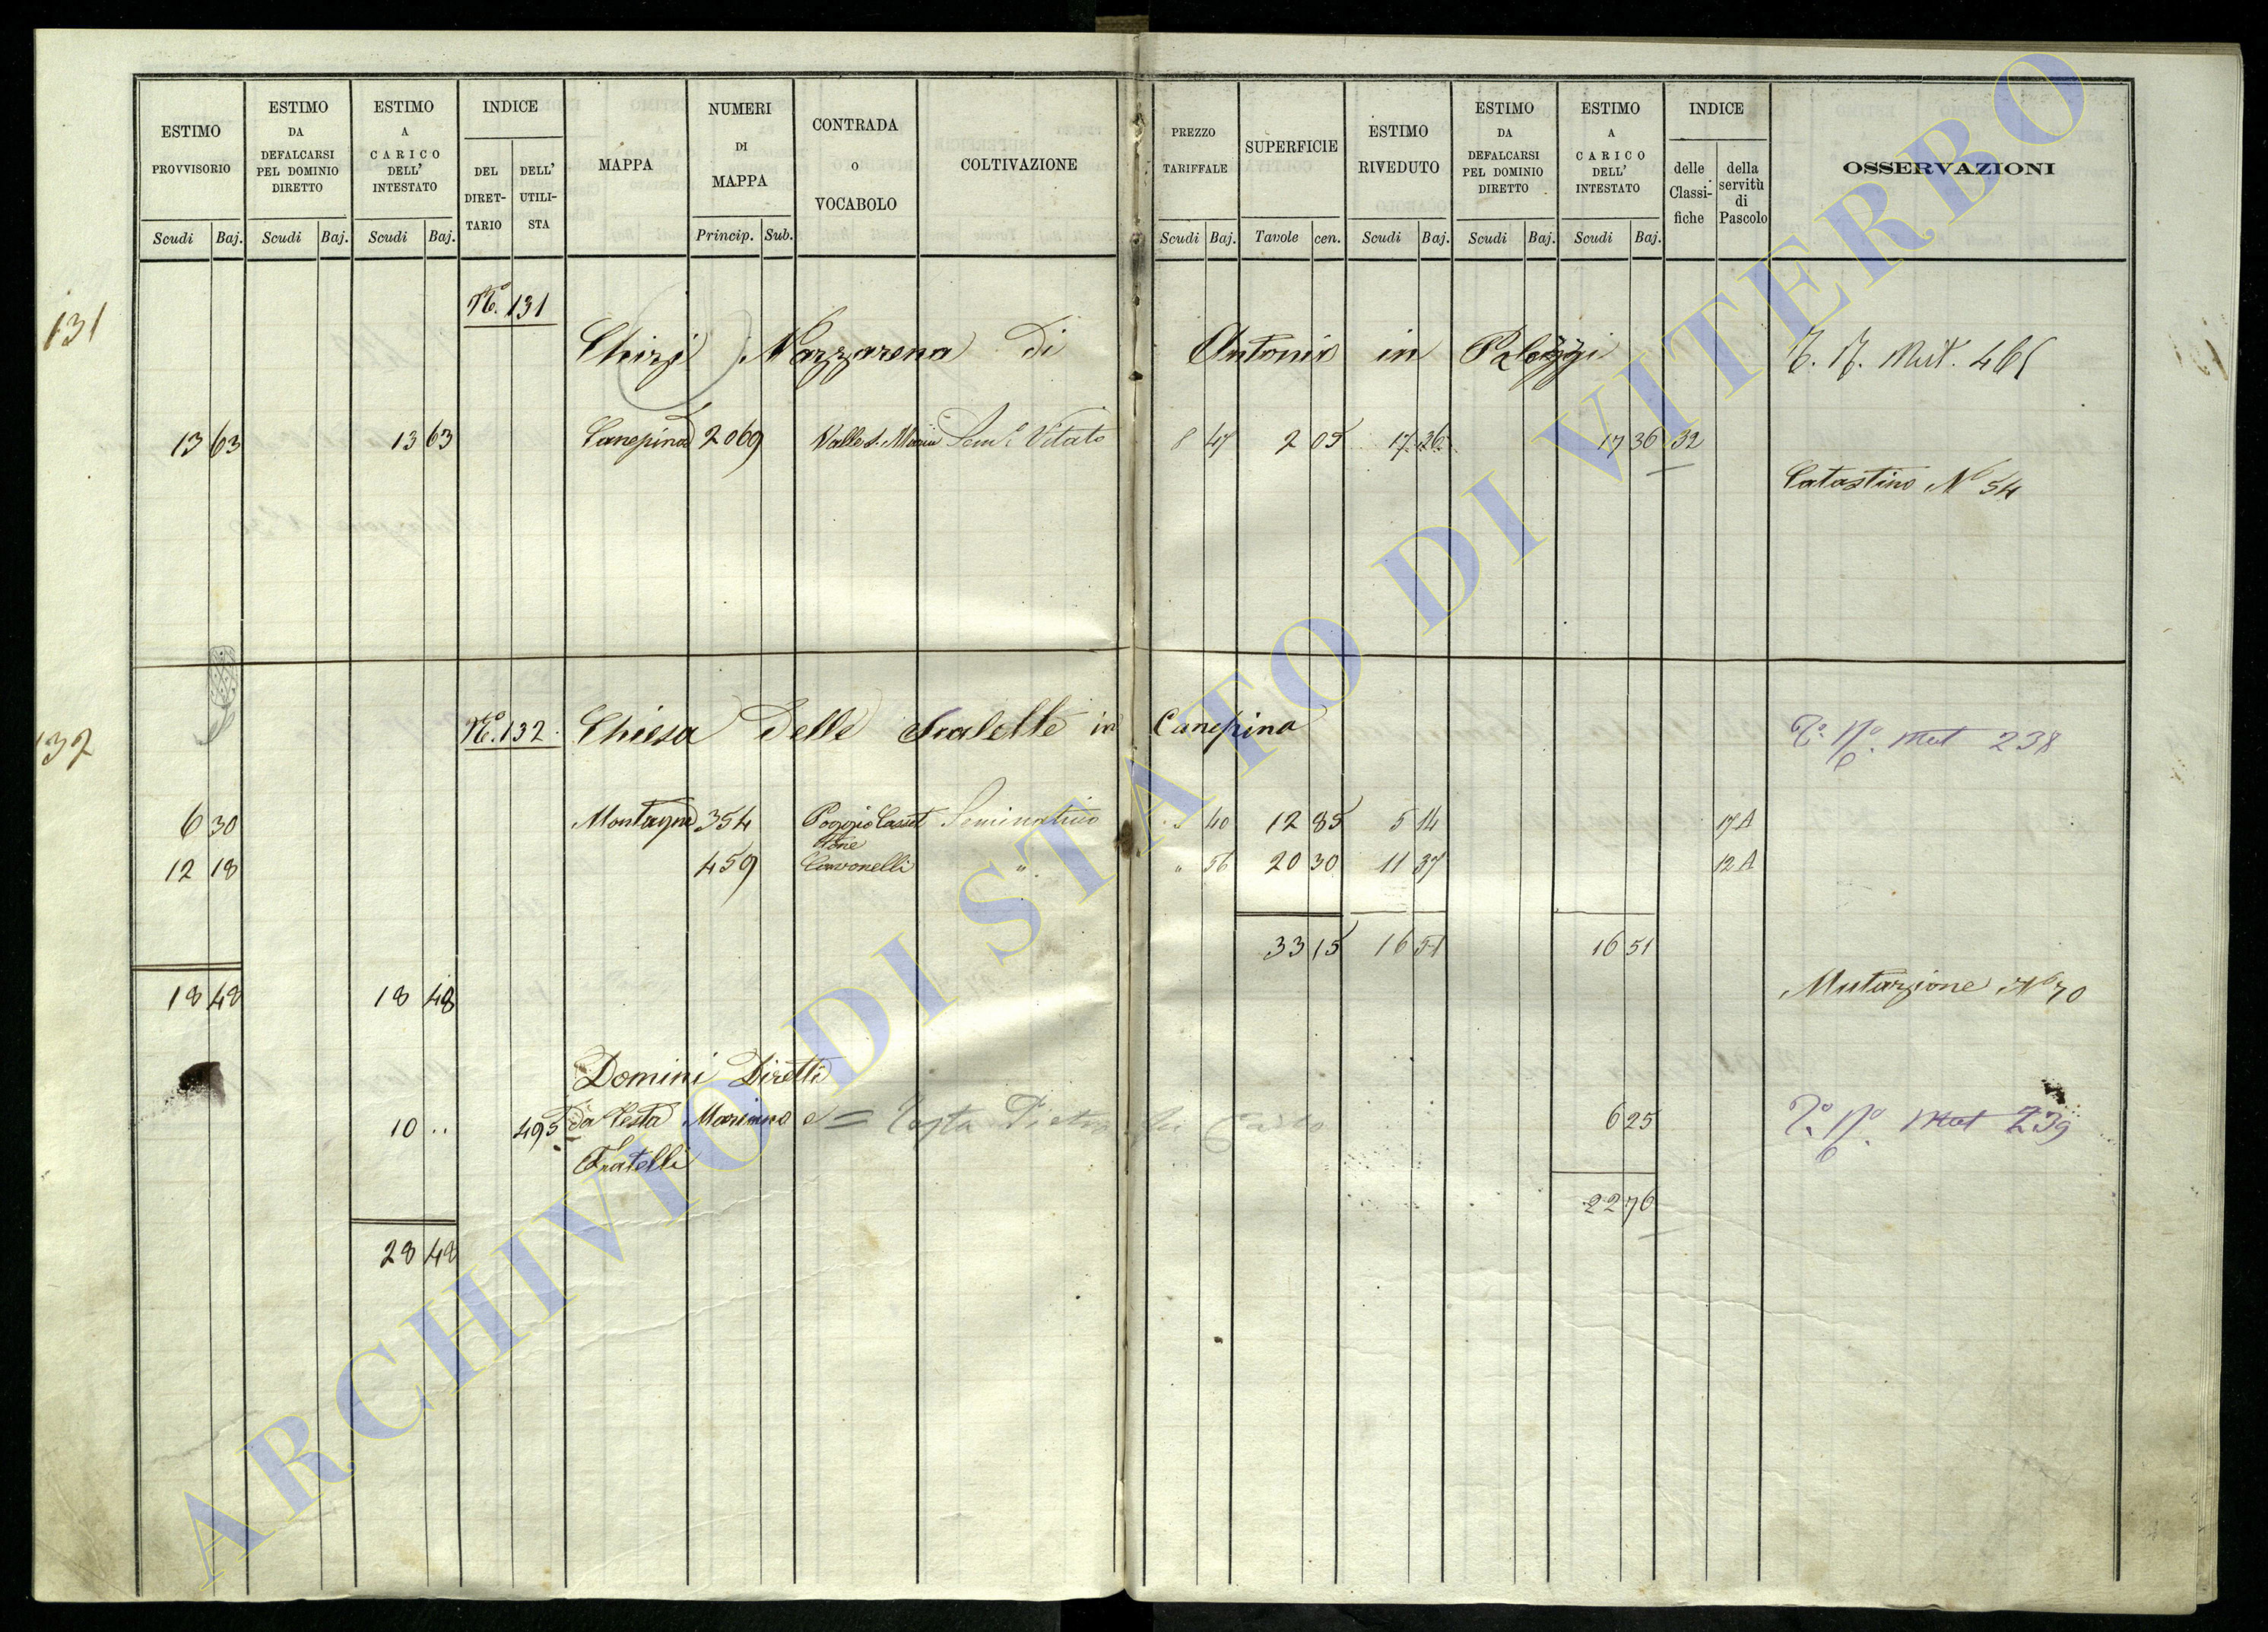 ESTIMO PROVVISORIO
ESTIMO DA DEFALCARSI PEL DOMINIO DIRETTO
ESTIMO A CARICO DELL' INTESTATO
INDICE
DEL DIRET-TARIO
DELL' UTILI-STA
MAPPA
NUMERI DI MAPPA
CONTRADA o VOCABOLO
COLTIVAZIONE
PREZZO TARIFFALE
SUPERFICIE
ESTIMO RIVEDUTO
ESTIMO DA DEFALCARSI PEL DOMINIO DIRETTO
ESTIMO A CARICO DELL' INTESTATO
INDICE
delle Classi-fiche
della servitù di Pascolo
OSSERVAZIONI
Scudi Baj. Scudi Baj. Scudi Baj. Princip. Sub. Scudi Baj. Tavole cen. Scudi Baj. Scudi Baj. Scudi Baj.
131
No. 131
Chirzi Nazzarena di Antonio in Palozzi
Mut. 461
13 63 13 63 Canepina 2069 Valle S. Maria Sem.e Vitato 8 47 2 05 17 36 17 36 32
Catastino No 54
132
No. 132. Chiesa delle Scalette in Canepina
Mut 238
6 30 Montagna 354 Poggio Casset Seminativo " 40 12 85 5 14 17 A
tone
12 18 459 Cavonelli " " 56 20 30 11 37 12 A
33 15 16 51 16 51
18 48 18 48
Mutazione No 70
Domini Diretti
10 .. 495 da Testa Mariano e = Testa Pietro fu 6 25 Mut 239
Fratelli
22 76
28 48
ARCHIVIO DI STATO DI VITERBO